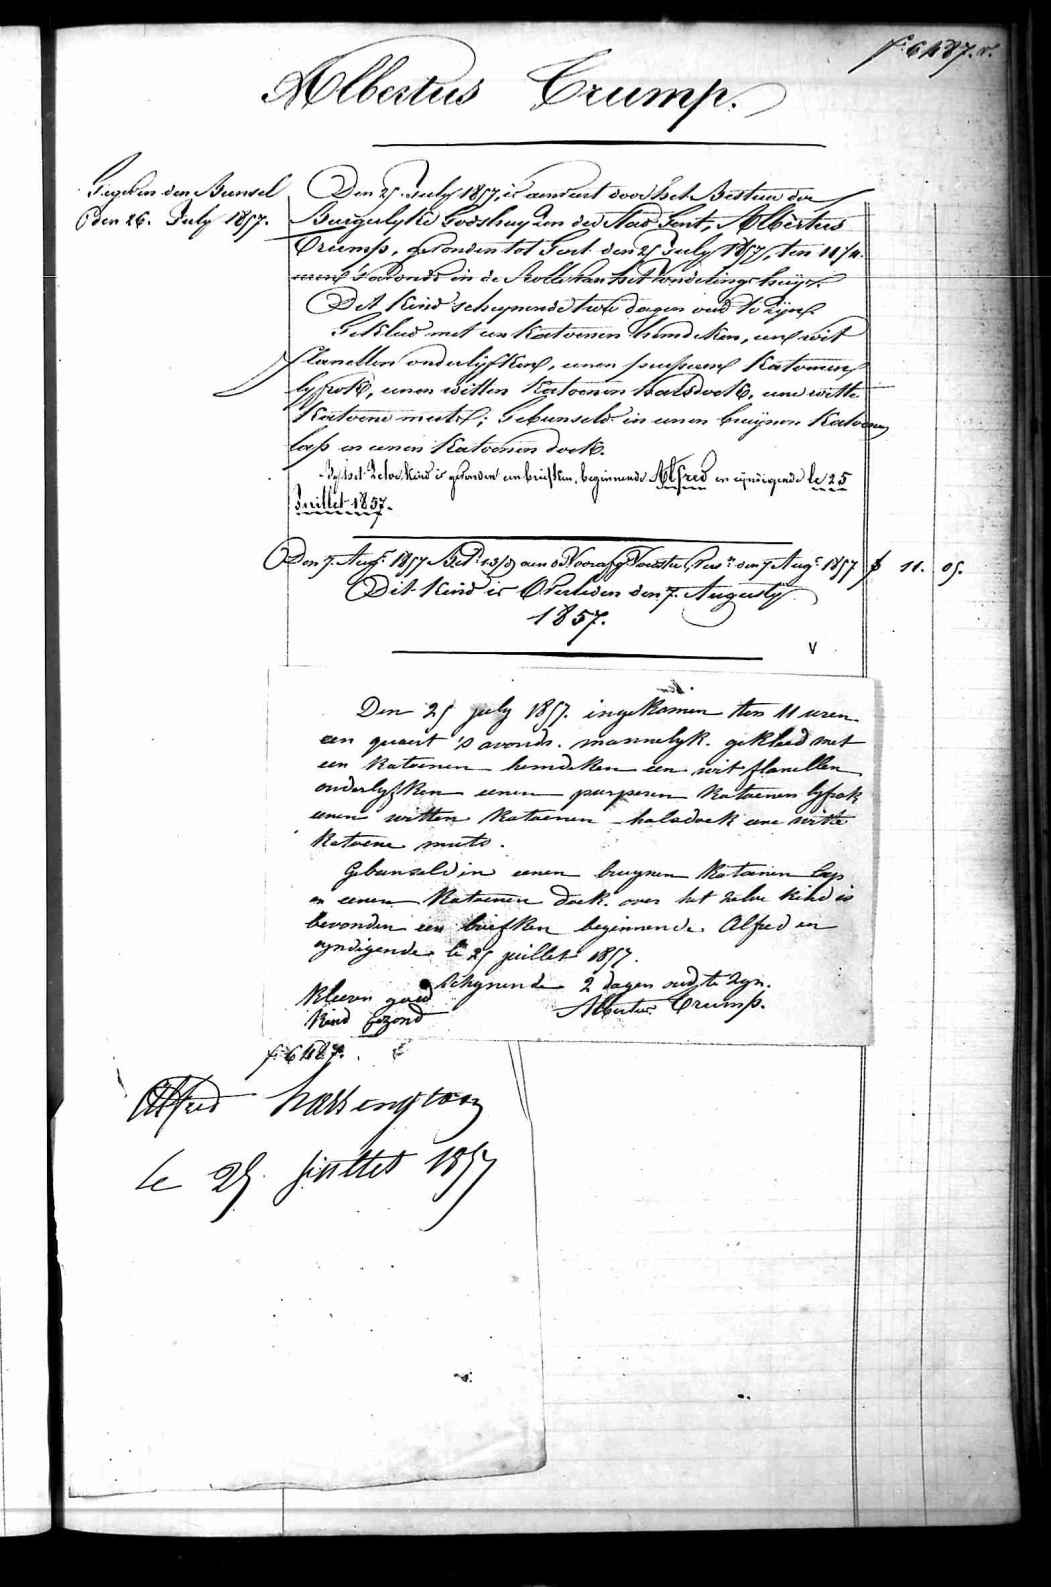 f° 6487. v°.
Albertus Crump.
Gegeven den Bunsel
den 26. July 1857.
Den 25 July 1857, is aenveert door het Bestuer der
Burgerlyke Godshuyzen der Stad Gent, Albertus
Crump, gevonden tot Gent den 25 July 1857, ten 11 1/4
uren 's avonds in de Rolle van het Vondelingshuys.
Dit Kind scheynende twee dagen oud te zyn.
Gekleed met een Katoenen hemdeken, een wit
flanellen onderlyfken, eenen purperen Katoenen
lyfrok, eenen witten Katoenen halsdoek, eene witte
Katoene muts; Gebunseld in eenen bruynen Katoenen
lap en eenen Katoenen doek.
By het zelve Kind is gevonden een briefken, beginnende Alfred en eyndigende le 25
Juillet 1857.
Den 7. Aug. 1857 Bet. aen d' Voorz. den 7 Aug. 1857 f 11. 05.
Dit Kind is Overleden den 7. Augusty
1857.
V
Den 25 july 1857. ingekomen ten 11 uren
een quaert 's avonds. mannelyk. gekleed met
een Katoenen hemdeken een wit flanellen
onderlyfken eenen purperen Katoenen lyfrok
eenen witten Katoenen halsdoek eene witte
Katoene muts.
Gebunseld in eenen bruynen Katoenen lap
en eenen Katoenen doek. over het zelve kind is
bevonden een briefken beginnende. Alfred en
eyndigende le 25 juillet 1857.
Schynende 2 dagen oud te zyn.
Kleeren goed
Albertus Crump.
Kind gezond
f° 6487.
Alfred
le 25. juillet 1857